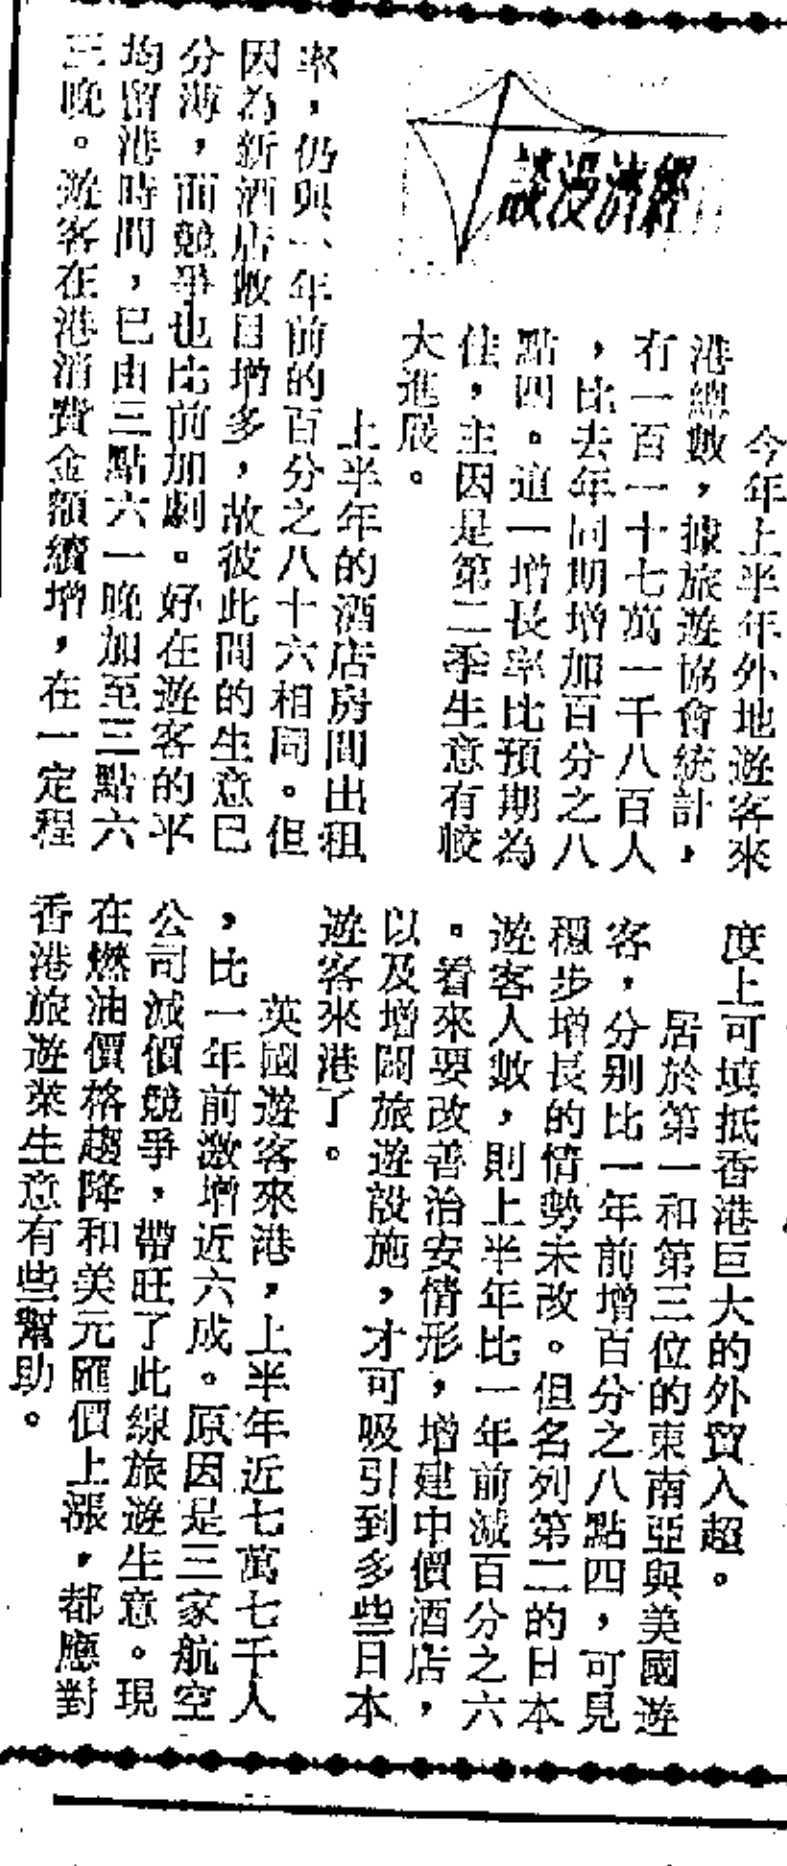 經濟漫談
今年上半年外地遊客來
港總數，據旅遊協會統計，
有一百一十七萬一千八百人
，比去年同期增加百分之八
點四。這一增長率比預期為
佳，主因是第二季生意有較
大進展。
上半年的酒店房間出租
率，仍與一年前的百分之八十六相同。但
因為新酒店數目增多，故彼此間的生意已
分薄，而競爭也比前加劇。好在遊客的平
均留港時間，已由三點六一晚加至三點六
三晚。遊客在港消費金額續增，在一定程
度上可填抵香港巨大的外貿入超。
居於第一和第三位的東南亞與美國遊
客，分別比一年前增百分之八點四，可見
穩步增長的情勢未改。但名列第二的日本
遊客人數，則上半年比一年前減百分之六
。看來要改善治安情形，增建中價酒店，
以及增闢旅遊設施，才可吸引到多些日本
遊客來港了。
英國遊客來港，上半年近七萬七千人
，比一年前激增近六成。原因是三家航空
公司減價競爭，帶旺了此線旅遊生意。現
在燃油價格趨降和美元匯價上漲，都應對
香港旅遊業生意有些幫助。